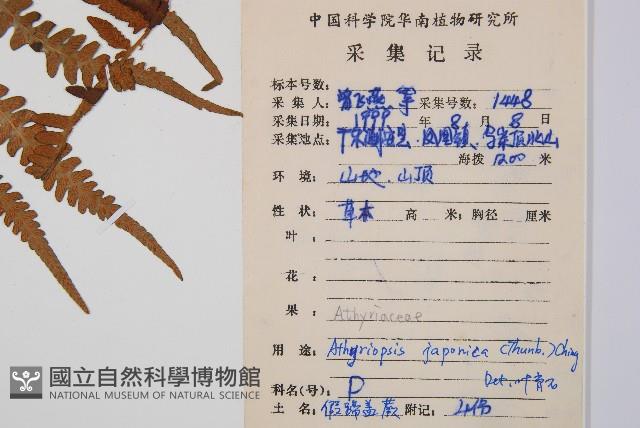 中国科学院华南植物研究所
采集记录
标本号数:
采集人: 曾飞燕 等 采集号数: 1448
采集日期: 1999 年 8 月 8 日
采集地点: 广东 凤凰镇、乌岽顶
海拨 1200 米
环境: 山地、山顶
性状: 草本 高 米; 胸径 厘米
叶:
花:
果: Athyriaceae
用途: Athyriopsis japonica (Thunb.) Ching
Det. 叶育石
科名(号): P
土名: 假蹄盖蕨 附记: 4份
國立自然科學博物館
NATIONAL MUSEUM OF NATURAL SCIENCE